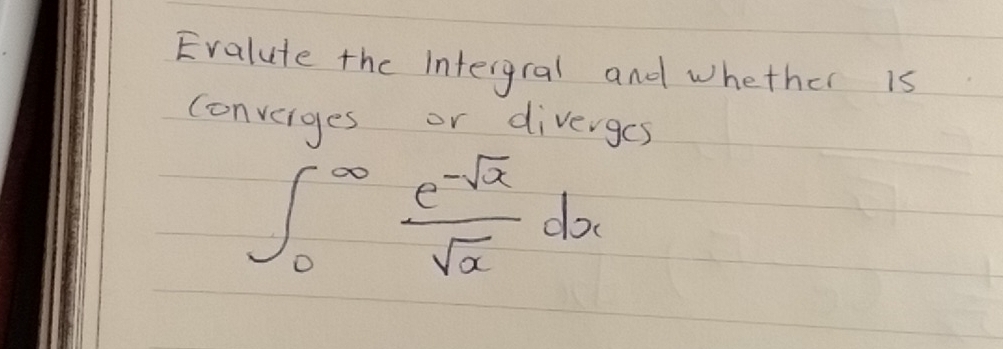 Evalute the Intergral and whether is
Converges or diverges
∫₀^∞ e^(-√x) / √x dx